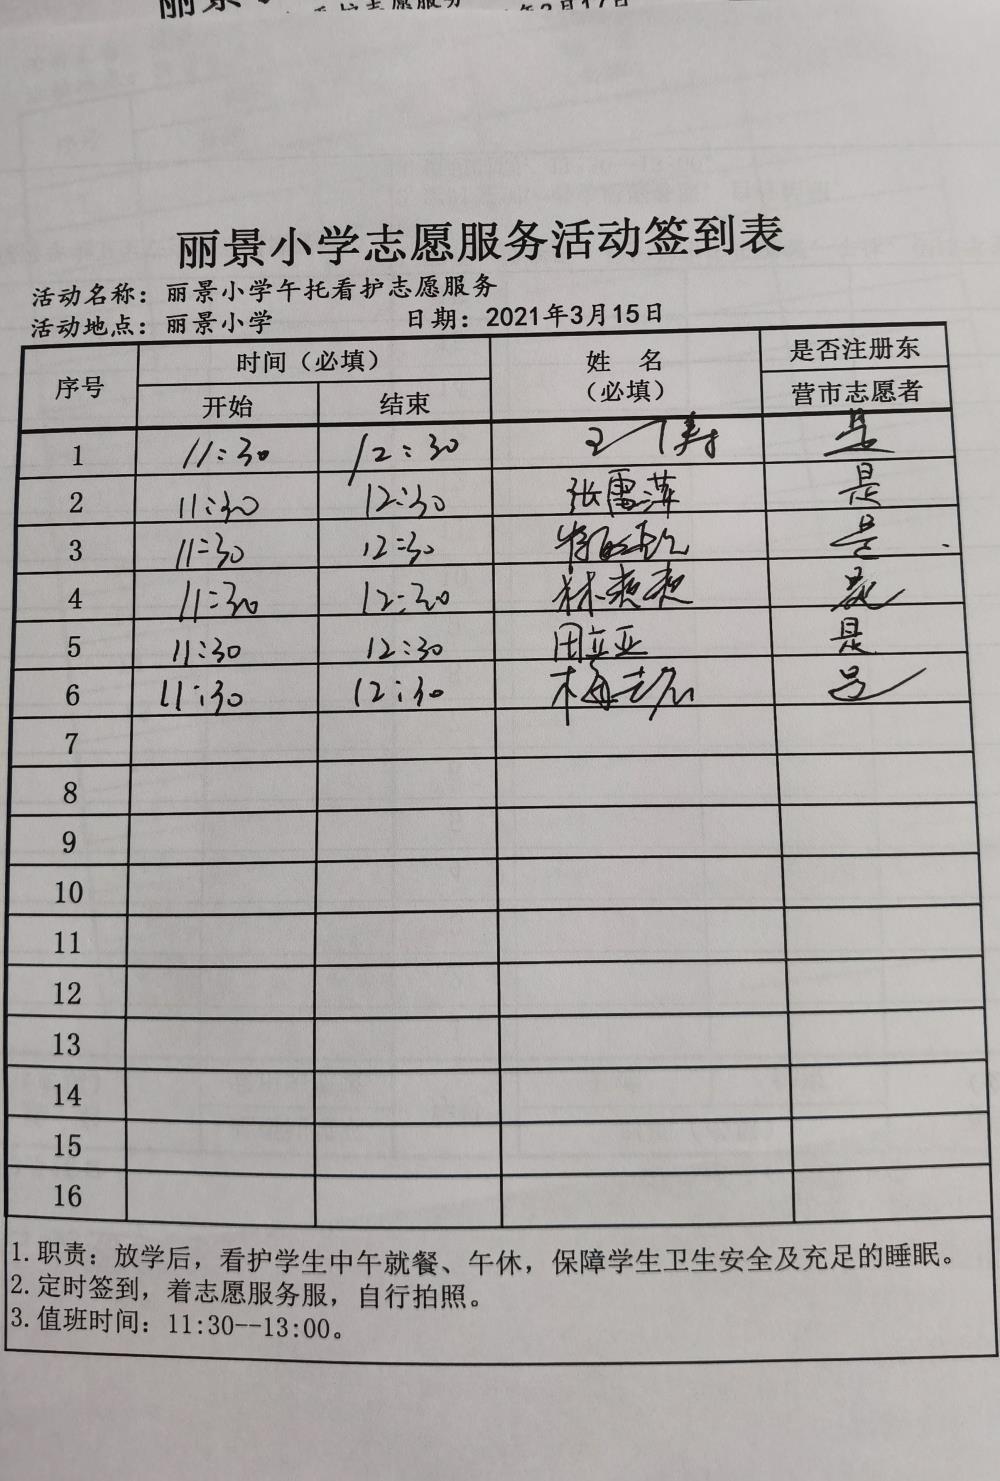 丽景小学志愿服务活动签到表
活动名称：丽景小学午托看护志愿服务
活动地点：丽景小学 日期：2021年3月15日
序号 时间（必填） 姓 名（必填） 是否注册东营市志愿者
开始 结束
1 11:30 12:30 是
2 11:30 12:30 张雪萍 是
3 11:30 12:30 是
4 11:30 12:30 林爽爽 是
5 11:30 12:30 田立亚 是
6 11:30 12:30 是
7
8
9
10
11
12
13
14
15
16
1.职责：放学后，看护学生中午就餐、午休，保障学生卫生安全及充足的睡眠。
2.定时签到，着志愿服务服，自行拍照。
3.值班时间：11:30--13:00。